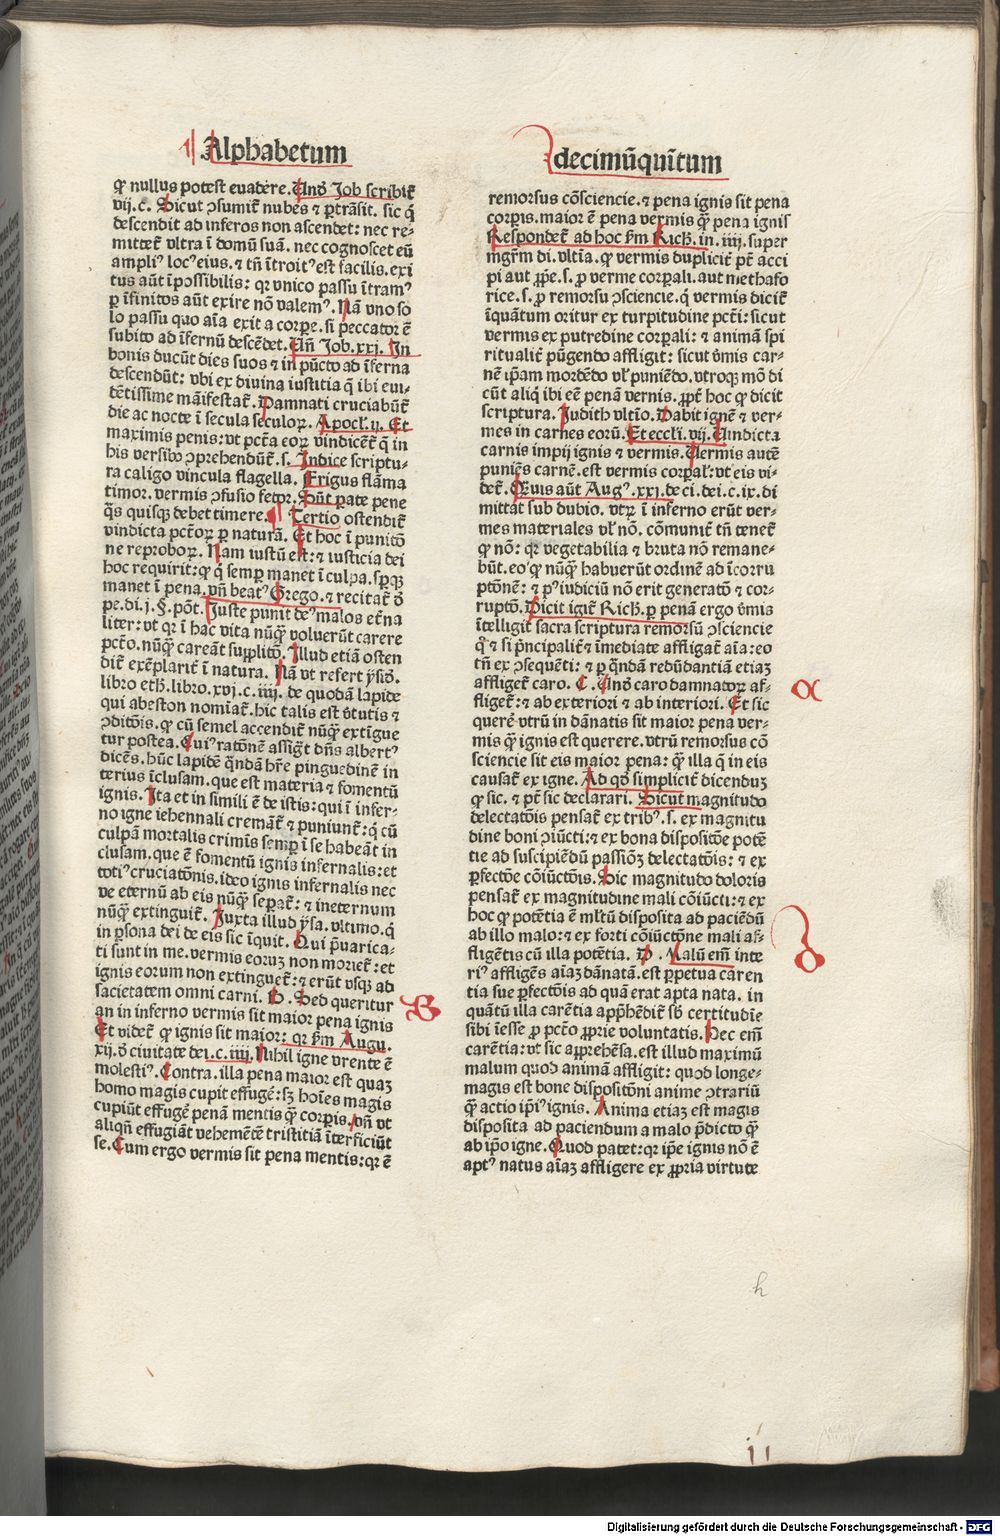 Alphabetum
ꝙ nullus potest euadere. Unđ Job scribit̉
vij. c. Sicut ꝯsumit̉ nubes ⁊ ꝑtrāsit. sic q̇
descendit ad inferos non ascendet: nec re-
mittet̉ vltra ī domū suā. nec cognoscet eū
ampliꝰ locꝰ eius. ⁊ tn̄ ītroitꝰ est facilis. exi
tus aūt īpossibilis: qꝛ vnico passu ītramꝰ
ꝑ īfinitos aūt exire nō valemꝰ. Nā vno so
lo passu quo aīa exit a corpe. si peccator ē
subito ad īfernū descēdet. Un̄ Job. xxj. In
bonis ducūt dies suos ⁊ in pūcto ad īferna
descendūt: vbi ex diuina iustitia q̇ ibi eui-
dētissime māifestat̉. Damnati cruciabūt̉
die ac nocte ī secula seculoꝝ. Apocl̓. ij. Et
maximis penis: vt pctā eoꝝ vindicet̉ q̇ in
his versibꝰ ꝯprehendūt̉. s. Indice scriptu-
ra caligo vincula flagella. Frigus flāma
timor. vermis ꝯfusio fetor. Sūt parate pene
q̄s quisqꝫ debet timere. Tertio ostendit̉
vindicta pctōꝝ ꝑ naturā. Et hoc ī punitō
ne reproboꝝ. Nam iustū est: ⁊ iusticia dei
hoc requirit: ꝙ q̇ semꝑ manet ī culpa. sꝑqꝫ
manet ī pena. vn̄ beatꝰ Grego. ⁊ recitat̉ đ
pe. di. j. §. pōt. Juste punit deꝰ malos et̉na
liter: vt qꝛ ī hac vita nūq̄ voluerūt carere
pctō. nūq̄ careāt supplitō. Illud etiā osten
dit̉ exēplarit̉ ī natura. Nā vt refert ysiđ.
libro eth. libro. xvj. c. iiij. de quodā lapide
qui abeston nomīat̉. hic talis est v̓tutis ⁊
ꝯditōis. ꝙ cū semel accendit̉ nūq̄ extīgue
tur postea. Cuiꝰ ratōnē assigt̉ dn̄s albertꝰ
dicēs. hūc lapidē q̄ndā hr̄e pinguedinē in
terius īclusam. que est materia ⁊ fomentū
ignis. Ita et in simili ē de istis: qui ī infer-
no igne iehennali cremāt̉ ⁊ puniunt̉: q̇ cū
culpā mortalis crimīs semꝑ ī se habeāt in
clusam. que ē fomentū ignis infernalis: et
totiꝰ cruciatōnis. ideo ignis infernalis nec
ve eternū ab eis nūq̄ seꝑat̉: ⁊ ineternum
nūq̄ extinguit̉. Juxta illud ysa. vltimo. q̇
in ꝑsona dei de eis sic īquit. Qui p̄uarica-
ti sunt in me. vermis eoruꝫ non moriet̉: et
ignis eorum non extinguet̉: ⁊ erūt vsqꝫ ad
sacietatem omni carni. B. Sed queritur
B
an in inferno vermis sit maior pena ignis
Et videt̉ ꝙ ignis sit maior: qꝛ ẜm Augu.
xij. đ ciuitate dei. c. iiij. Nihil igne vrente ē
molestiꝰ. Contra. illa pena maior est quaꝫ
homo magis cupit effugē: sꝫ hoīes magis
cupiūt effugē penā mentis q̄ꝫ corꝑis. vn̄ vt
aliqn̄ effugiāt vehemētē tristitiā īterficiūt
se. Cum ergo vermis sit pena mentis: qꝛ ē
decimūquītum
remorsus cōsciencie. ⁊ pena ignis sit pena
corꝑis. maior ē pena vermis q̄ꝫ pena ignis
Respondet̉ ad hoc ẜm Rich̓. in. iiij. super
mgr̄m di. vltīa. ꝙ vermis duplicit̉ pōt acci
pi aut ꝓpe. s. ꝓ verme corꝑali. aut methafo
rice. s. ꝓ remorsu ꝯsciencie. q̇ vermis dicit̉
īquātum oritur ex turpitudine pctī: sicut
vermis ex putredine corꝑali: ⁊ animā spi
ritualit̉ pūgendo affligit: sicut v̓mis car-
nē ip̄am mordēdo vl̓ puniēdo. vtroqꝫ mō di
cūt aliq̇ ibi eē penā vermis. ꝓpt̉ hoc ꝙ dicit
scriptura. Judith vltīo. Dabit ignē ⁊ ver-
mes in carnes eorū. Et eccli. vij. Uindicta
carnis impij ignis ⁊ vermis. Uermis autē
puniēs carnē. est vermis corꝑal̓: vt eis vi-
det̉. Quis aūt Augꝰ. xxj. de ci. dei. c. ix. di
mittat sub dubio. vtꝝ ī inferno erūt ver-
mes materiales vl̓ nō. cōmunit̉ tn̄ tenet̉
ꝙ nō: qꝛ vegetabilia ⁊ bruta nō remane-
būt. eo ꝙ nūq̄ habuerūt ordinē ad īcorru
ptōnē: ⁊ pꝰ iudiciū nō erit generatō ⁊ cor-
ruptō. Dicit igit̉ Rich̓. ꝑ penā ergo v̓mis
ītelligit̉ sacra scriptura remorsū ꝯsciencie
q̇ ⁊ si pn̄cipalit̉ ⁊ īmediate affligat̉ aīa: eo
tn̄ ex ꝯsequēti: ⁊ ꝑ q̄ndā redūdantiā etiaꝫ
affliget̉ caro. C. Unđ caro damnatoꝝ af-
α
fliget̉: ⁊ ab exteriori ⁊ ab interiori. Et sic
querē vtrū in dānatis sit maior pena ver-
mis q̄ꝫ ignis est querere. vtrū remorsus cō
sciencie sit eis maior pena: q̄ꝫ illa q̄ in eis
causat̉ ex igne. Ad qđ simplicit̉ dicenduꝫ
ꝙ sic. ⁊ pt̉ sic declarari. Sicut magnitudo
delectatōis pensat̉ ex tribꝰ. s. ex magnitu
dine boni ꝯiūcti: ⁊ ex bona dispositōe potē
tie ad suscipiēdū passiōꝫ delectatōis: ⁊ ex
ꝑfectōe cōiūctōis. Sic magnitudo doloris
pensat̉ ex magnitudine mali cōiūcti: ⁊ ex
hoc ꝙ potētia ē ml̓tū disposita ad paciēdū
ab illo malo: ⁊ ex forti cōiūctōne mali af-
fligētis cū illa potētia. D. Malū em̄ inte
D
riꝰ affligēs aīaꝫ dānatā. est ꝑpetua caren
tia sue ꝑfectōis ad quā erat apta nata. in
quātū illa carētia app̄hēdit̉ sb̓ certitudīe
sibi īesse ꝓ pctō ꝓprie voluntatis. Hec em̄
carētia: vt sic app̄rehēsa. est illud maximū
malum quod animā affligit: quod longe-
magis est bone dispositōni anime ꝯtrariū
q̄ꝫ actio ip̄iꝰ ignis. Anima etiaꝫ est magis
disposita ad paciendum a malo p̄dicto q̄ꝫ
ab ip̄o igne. Quod patet: qꝛ ip̄e ignis nō ē
aptꝰ natus aīaꝫ affligere ex ꝓpria virtute
h
Digitalisierung gefördert durch die Deutsche Forschungsgemeinschaft - DFG